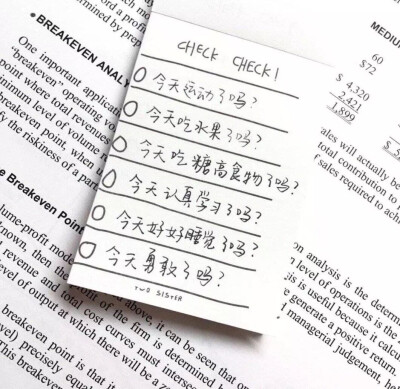 CHECK CHECK!
今天运动了吗?
今天吃水果了吗?
今天吃糖高食物了吗?
今天认真学习了吗?
今天好好睡觉了吗?
今天勇敢了吗?
TWO SISTER
BREAKEVEN ANALY
One important applicat
"breakeven" operating vo
point where total revenues
minimum level of volume
breakeven point, when u
the riskiness of a par
he Breakeven Point
lume-profit mode
nown, then the
revenue and total cost curves must intersect
level of output at which there will be a z
breakeven point is that i
vel) precisely equal
This breakev
Profit of the firm is determined
above, it can be seen that or
MEDIUM
60
$72
$ 4,320
2,421
1,899
ales will actually be
total contribution to
f sales required to achie
on analysis is the determ
n level of operations is the
is is useful because it calcul
e generate a positive return.
managerial judgement